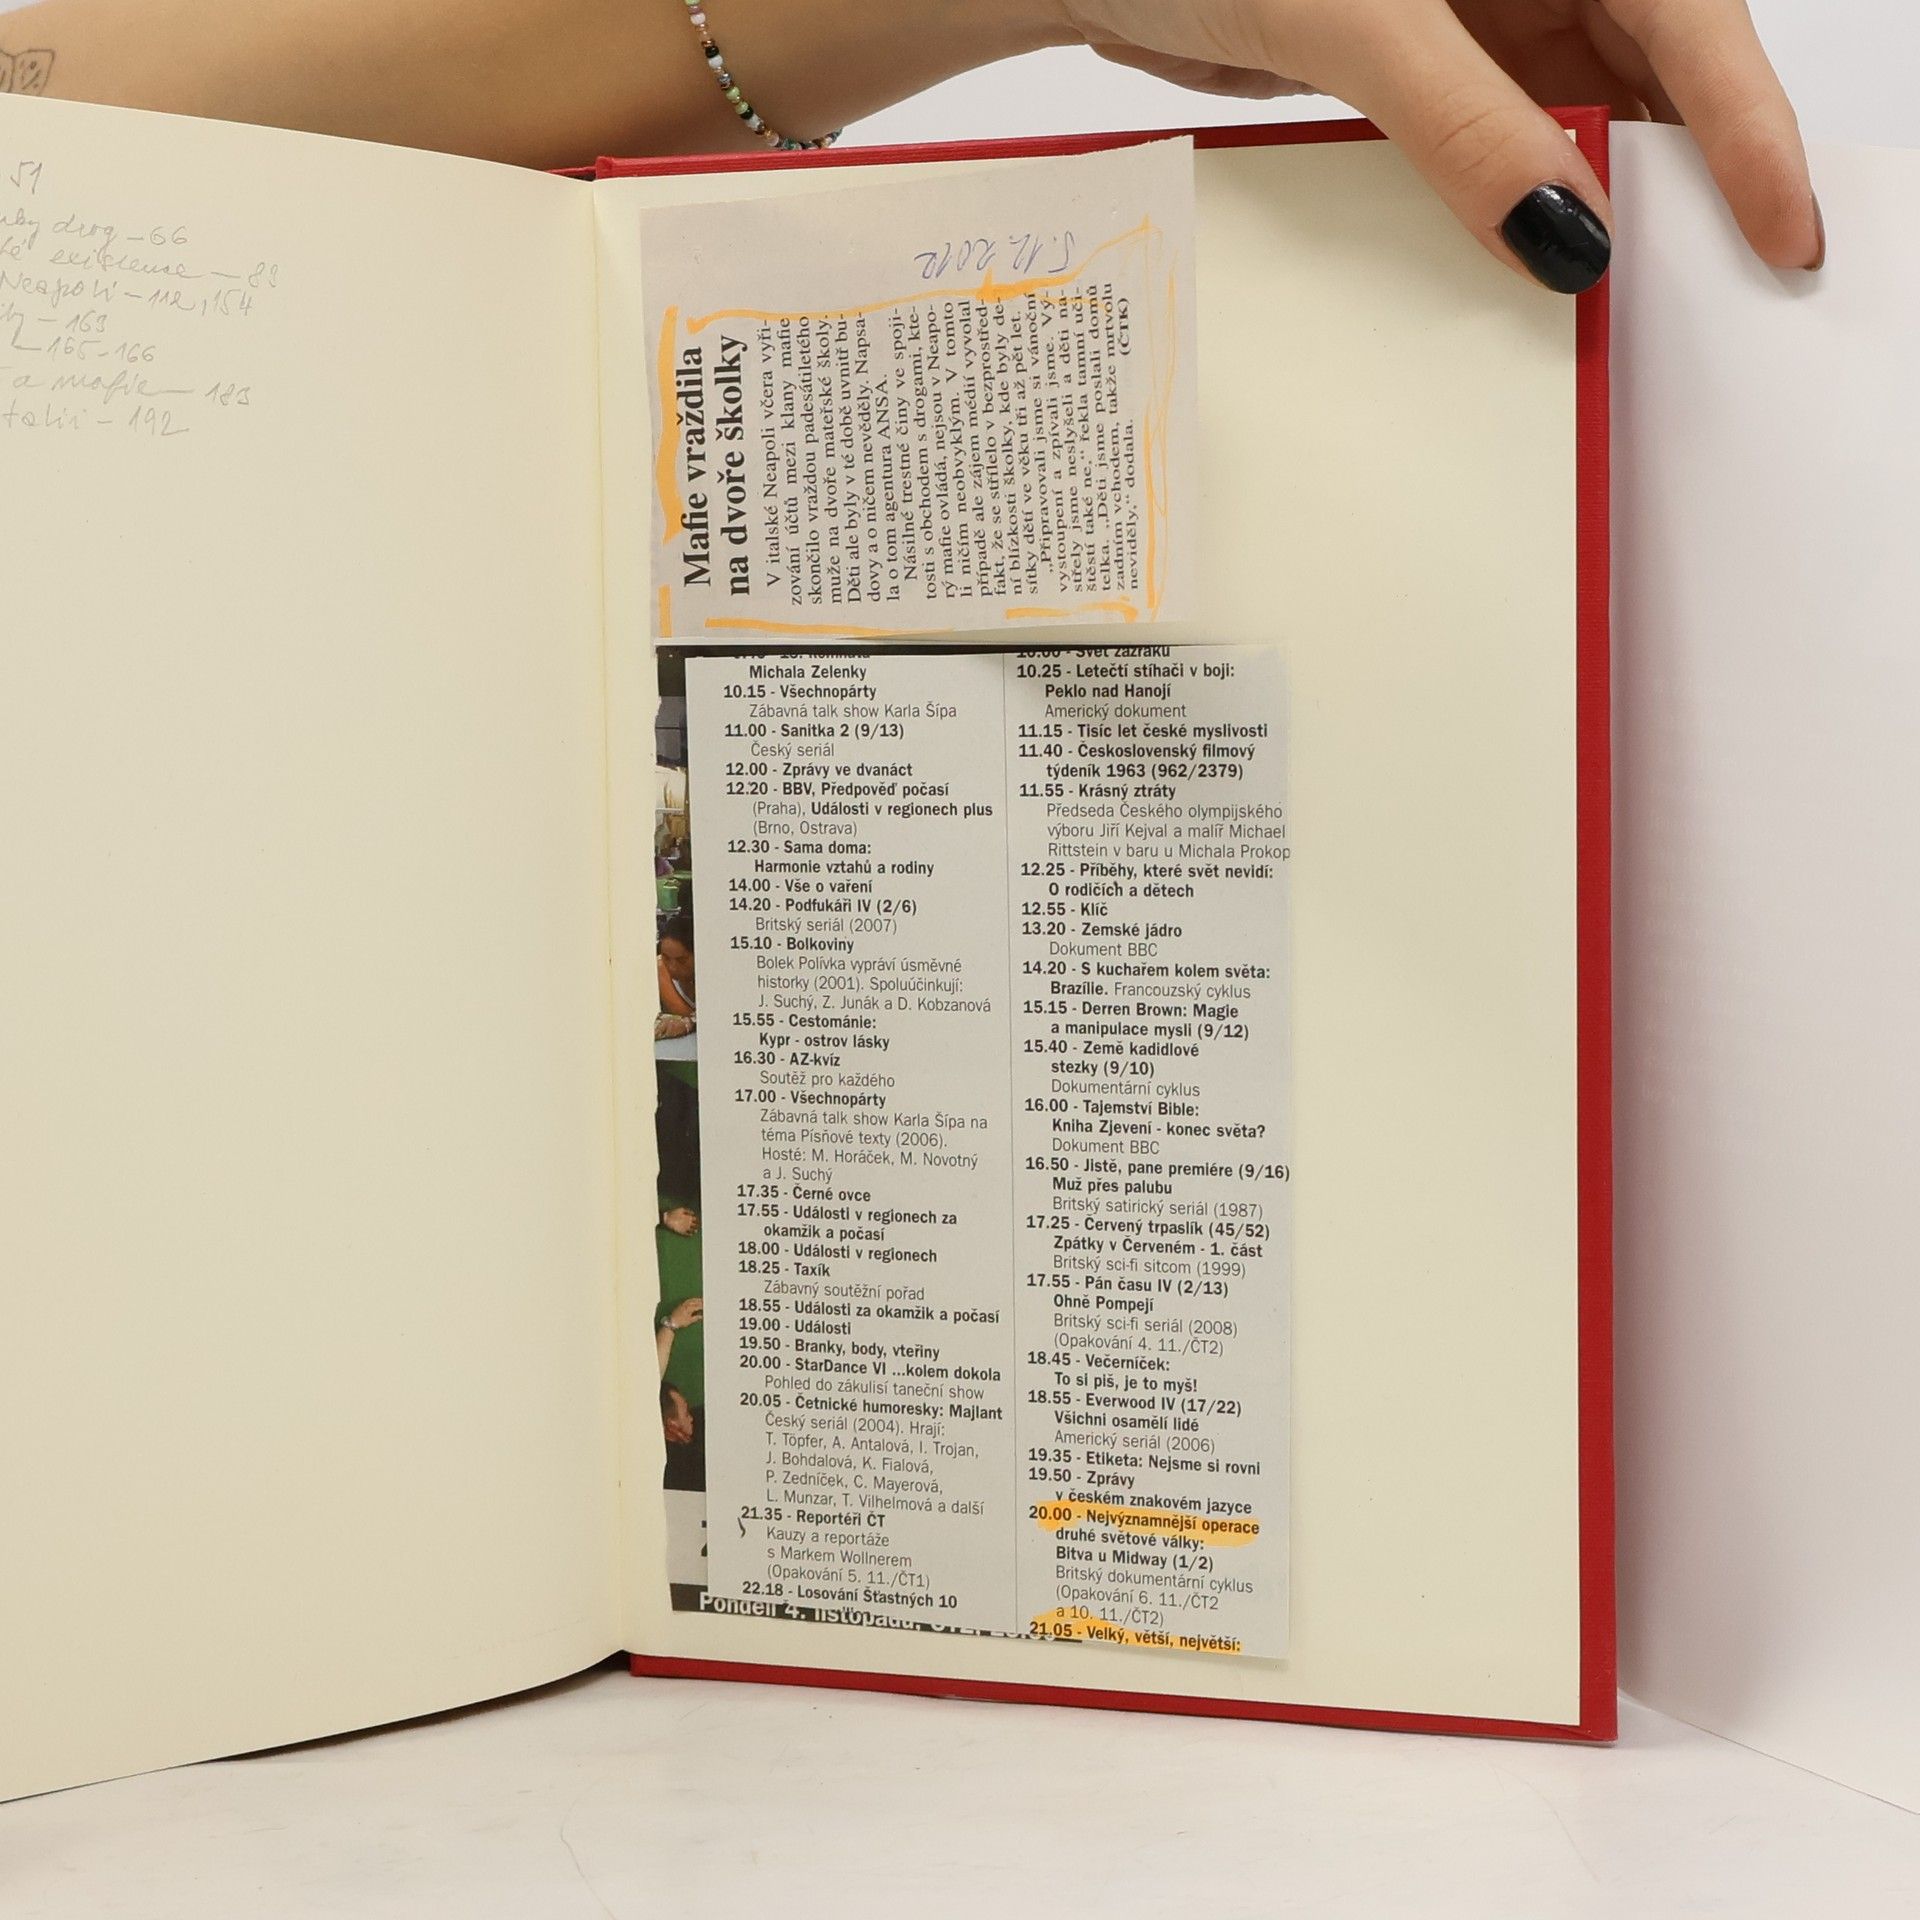 51
drog – 66
existence – 83
Neapoli – 112, 154
– 163
– 165-166
a mafie – 183
– 192
5.12.2012
Mafie vraždila
na dvoře školky
V italské Neapoli včera vyři-
zování účtů mezi klany mafie
skončilo vraždou padesátiletého
muže na dvoře mateřské školy.
Děti ale byly v té době uvnitř bu-
dovy a o ničem nevěděly. Napsa-
la o tom agentura ANSA.
Násilné trestné činy ve spoji-
tosti s obchodem s drogami, kte-
rý mafie ovládá, nejsou v Neapo-
li ničím neobvyklým. V tomto
případě ale zájem médií vyvolal
fakt, že se střílelo v bezprostřed-
ní blízkosti školky, kde byly de-
sítky dětí ve věku tři až pět let.
„Připravovali jsme si vánoční
vystoupení a zpívali jsme. Vý-
střely jsme neslyšeli a děti na-
štěstí také ne,“ řekla tamní uči-
telka. „Děti jsme poslali domů
zadním vchodem, takže mrtvolu
neviděly,“ dodala. (ČTK)
Michala Zelenky
10.15 - Všechnopárty
Zábavná talk show Karla Šípa
11.00 - Sanitka 2 (9/13)
Český seriál
12.00 - Zprávy ve dvanáct
12.20 - BBV, Předpověď počasí
(Praha), Události v regionech plus
(Brno, Ostrava)
12.30 - Sama doma:
Harmonie vztahů a rodiny
14.00 - Vše o vaření
14.20 - Podfukáři IV (2/6)
Britský seriál (2007)
15.10 - Bolkoviny
Bolek Polívka vypráví úsměvné
historky (2001). Spoluúčinkují:
J. Suchý, Z. Junák a D. Kobzanová
15.55 - Cestománie:
Kypr - ostrov lásky
16.30 - AZ-kvíz
Soutěž pro každého
17.00 - Všechnopárty
Zábavná talk show Karla Šípa na
téma Písňové texty (2006).
Hosté: M. Horáček, M. Novotný
a J. Suchý
17.35 - Černé ovce
17.55 - Události v regionech za
okamžik a počasí
18.00 - Události v regionech
18.25 - Taxík
Zábavný soutěžní pořad
18.55 - Události za okamžik a počasí
19.00 - Události
19.50 - Branky, body, vteřiny
20.00 - StarDance VI ...kolem dokola
Pohled do zákulisí taneční show
20.05 - Četnické humoresky: Majlant
Český seriál (2004). Hrají:
T. Töpfer, A. Antalová, I. Trojan,
J. Bohdalová, K. Fialová,
P. Zedníček, C. Mayerová,
L. Munzar, T. Vilhelmová a další
21.35 - Reportéři ČT
Kauzy a reportáže
s Markem Wollnerem
(Opakování 5. 11./ČT1)
22.18 - Losování Šťastných 10
Pondělí 4. listopadu,
10.00 - Svět zázraků
10.25 - Letečtí stíhači v boji:
Peklo nad Hanojí
Americký dokument
11.15 - Tisíc let české myslivosti
11.40 - Československý filmový
týdeník 1963 (962/2379)
11.55 - Krásný ztráty
Předseda Českého olympijského
výboru Jiří Kejval a malíř Michael
Rittstein v baru u Michala Prokop
12.25 - Příběhy, které svět nevidí:
O rodičích a dětech
12.55 - Klíč
13.20 - Zemské jádro
Dokument BBC
14.20 - S kuchařem kolem světa:
Brazílie. Francouzský cyklus
15.15 - Derren Brown: Magie
a manipulace mysli (9/12)
15.40 - Země kadidlové
stezky (9/10)
Dokumentární cyklus
16.00 - Tajemství Bible:
Kniha Zjevení - konec světa?
Dokument BBC
16.50 - Jistě, pane premiére (9/16)
Muž přes palubu
Britský satirický seriál (1987)
17.25 - Červený trpaslík (45/52)
Zpátky v Červeném - 1. část
Britský sci-fi sitcom (1999)
17.55 - Pán času IV (2/13)
Ohně Pompejí
Britský sci-fi seriál (2008)
(Opakování 4. 11./ČT2)
18.45 - Večerníček:
To si piš, je to myš!
18.55 - Everwood IV (17/22)
Všichni osamělí lidé
Americký seriál (2006)
19.35 - Etiketa: Nejsme si rovni
19.50 - Zprávy
v českém znakovém jazyce
20.00 - Nejvýznamnější operace
druhé světové války:
Bitva u Midway (1/2)
Britský dokumentární cyklus
(Opakování 6. 11./ČT2
a 10. 11./ČT2)
21.05 - Velký, větší, největší: